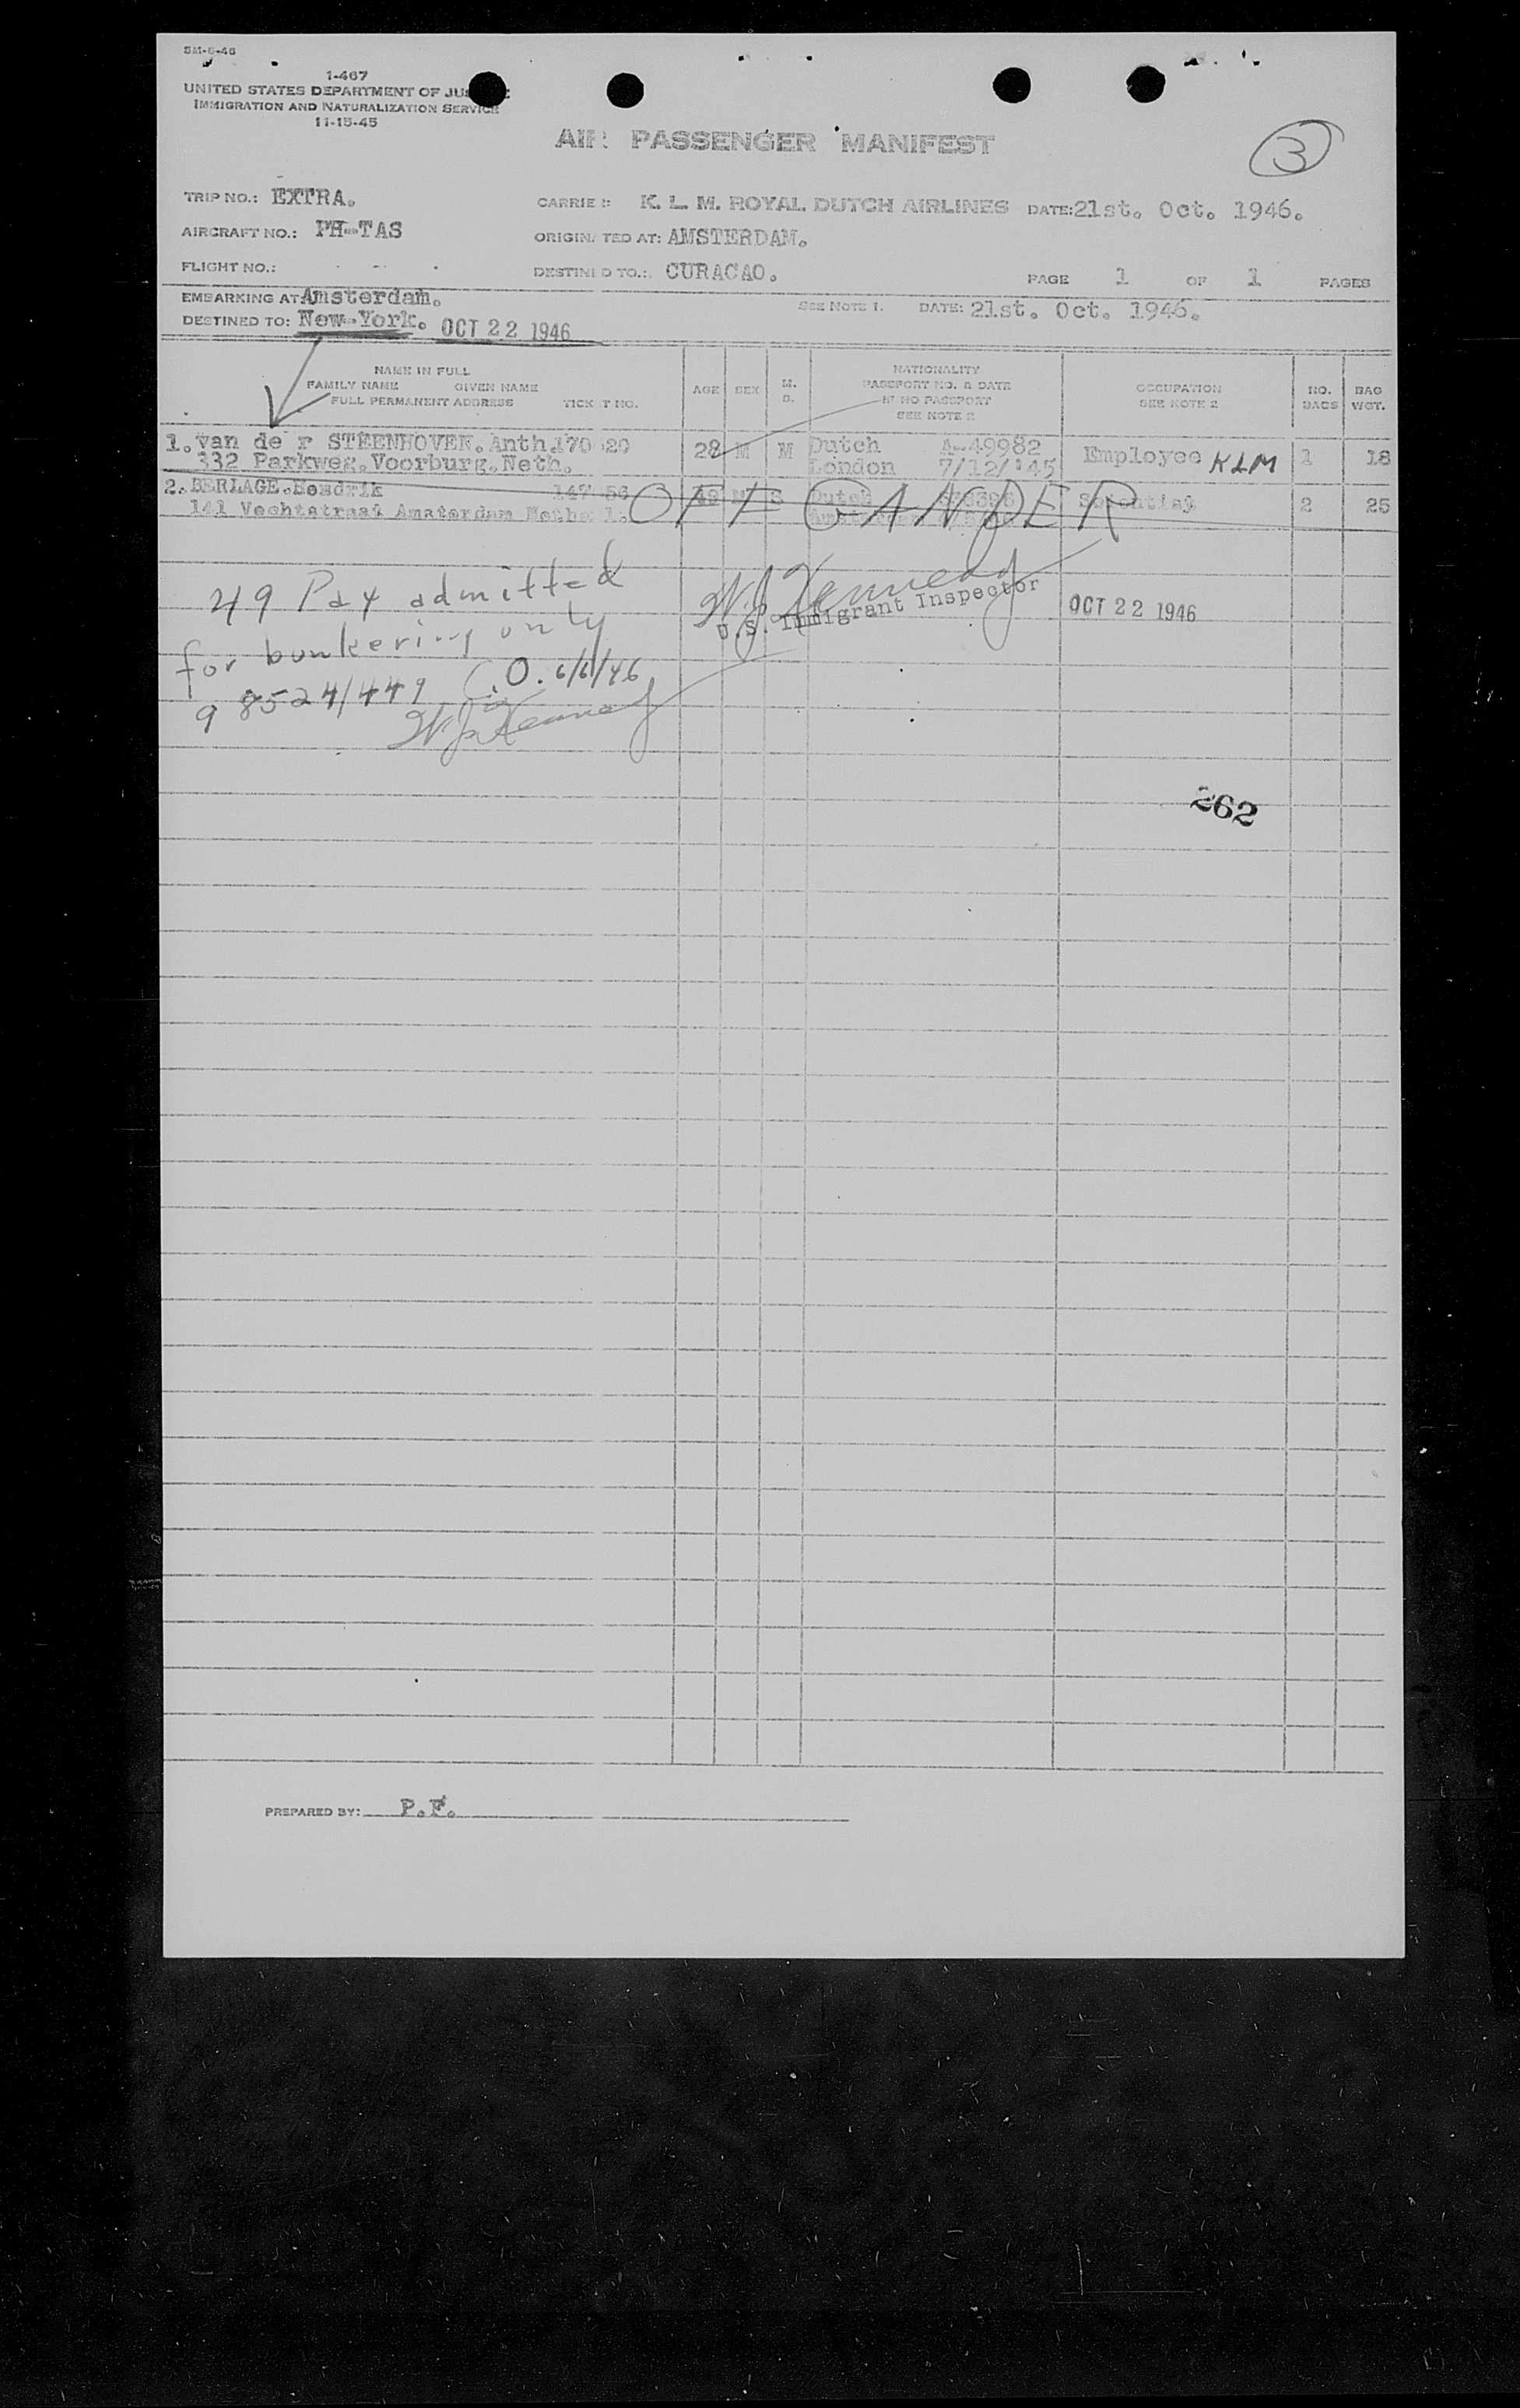 1-467
UNITED STATES DEPARTMENT OF
IMMIGRATION AND NATURALIZATION SERVICE
11-15-45
AIR PASSENGER MANIFEST
3
TRIP NO.: EXTRA. CARRIER: K. L. M. ROYAL DUTCH AIRLINES DATE: 21st. Oct. 1946.
AIRCRAFT NO.: PH-TAS ORIGINATED AT: AMSTERDAM.
FLIGHT NO.: DESTINED TO.: CURACAO. PAGE 1 OF 1 PAGES
EMBARKING AT Amsterdam. SEE NOTE 1. DATE: 21st. Oct. 1946.
DESTINED TO: New-York. OCT 22 1946
NAME IN FULL
FAMILY NAME GIVEN NAME
FULL PERMANENT ADDRESS TICKET NO.
AGE SEX M. S.
NATIONALITY
PASSPORT NO. & DATE
IF NO PASSPORT
SEE NOTE 2
OCCUPATION
SEE NOTE 2
NO. BAGS
BAG WGT.
1. van de r STEENHOVEN. Anth. 170 20 28 M M Dutch A-49982 Employee KLM 1 18
332 Parkweg. Voorburg. Neth. London 7/12/'45
2. BERLAGE. Hendrik 147 56 49 M S Dutch Scientist 2 25
141 Vechtstraat Amsterdam
OFF GANDER
49 Pax admitted
for bunkering only
9 8524/449 C.O. 6/6/46
W J Kennedy
W J Kennedy
U.S. Immigrant Inspector
OCT 22 1946
262
PREPARED BY: P.F.